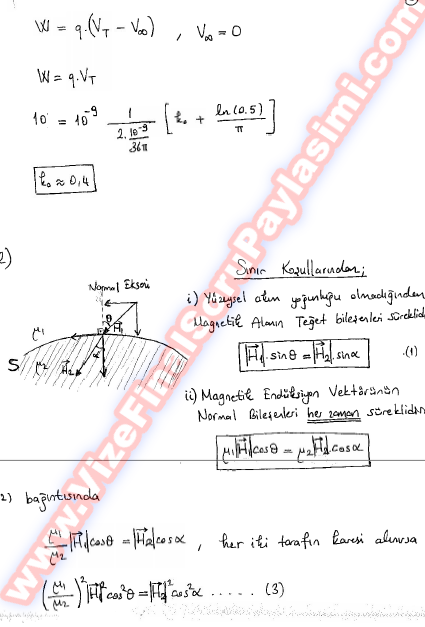 W = q.(V_T - V_∞) , V_∞ = 0
W = q.V_T
10 = 10^-9 1/(2.10^-9/36π) [k₀ + ln(0.5)/π]
k₀ ≈ 0,4
2)
Normal Ekseni
θ
H₁
μ₁
S
μ₂
H₂
α
Sınır Koşullarından;
i) Yüzeysel akım yoğunluğu olmadığından
Magnetik Alanın Teğet bileşenleri süreklidi
|H₁|.sinθ = |H₂|.sinα .(1)
ii) Magnetik Endüksiyon Vektörünün
Normal Bileşenleri her zaman süreklidir
μ₁|H₁|cosθ = μ₂|H₂|.cosα
2) bağıntısında
μ₁/μ₂ |H₁|cosθ = |H₂|cosα , her iki tarafın karesi alınırsa
(μ₁/μ₂)² |H₁|² cos²θ = |H₂|² cos²α ..... (3)
www.VizeFinalSoruPaylasimi.com